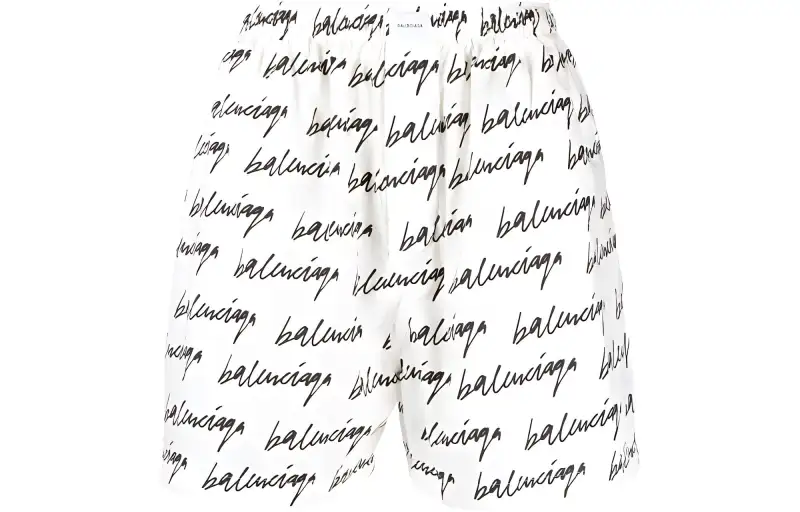 balenciaga balenciaga BALENCIAGA balenciaga
balenciaga balenciaga
alenciaga balenciaga
balenciaga balenciaga
balenciaga balenciaga
balenciaga balenciaga
balenciaga
balenciaga
balenciaga balenciaga
balenciaga balenciaga
balenciaga balenciaga
balenciaga alenciaga balenciaga
balenciaga balenciaga